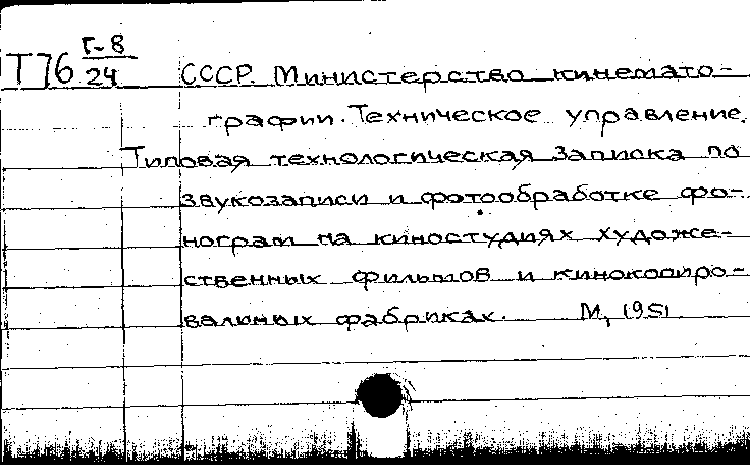 Т76 Г-8/24 СССР. Министерство кинемато-
графии. Техническое управление.
Типовая технологическая записка по
звукозаписи и фотообработке фо-
нограм на киностудиях художе-
ственных фильмов и кинокопиро-
вальных фабриках. М, 1951